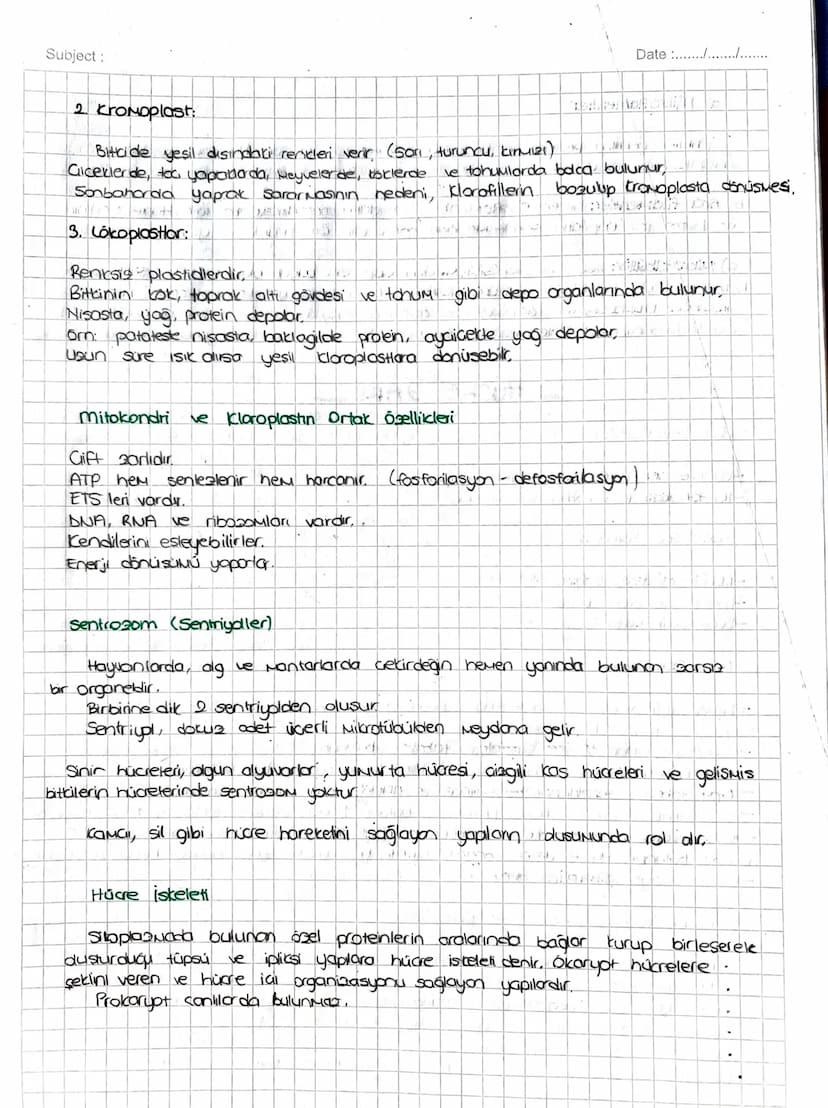 Subject :
Date :......./......./.......
2 Kromoplast:
Bitkide yesil dısındaki renkleri verir. (Sarı, turuncu, kırmızı)
Ciceklerde, tac yapraklarda, meyvelerde, köklerde ve tohumlarda bolca bulunur.
Sonbaharda yaprak sararmasının nedeni, klorofillerin bozulup kromoplasta dönüsmesi.
3. Lökoplastlar:
Renksiz plastidlerdir.
Bitkinin kök, toprak altı gövdesi ve tohum gibi depo organlarında bulunur.
Nisasta, yağ, protein depolar.
Örn: patateste nisasta, baklagilde protein, aycicekte yağ depolar.
Uzun süre ısık alırsa yesil kloroplastlara dönüsebilir.
Mitokondri ve Kloroplastın Ortak Özellikleri
Cift zarlıdır.
ATP hem sentezlenir hem harcanır. (fosforilasyon - defosforilasyon)
ETS leri vardır.
DNA, RNA ve ribozomları vardır.
Kendilerini esleyebilirler.
Enerji dönüsümü yaparlar.
Sentrozom (Sentriyoller)
Hayvanlarda, alg ve mantarlarda cekirdeğin hemen yanında bulunan zarsız
bir organeldir.
Birbirine dik 2 sentriyolden olusur.
Sentriyol, dokuz adet ücerli mikrotübülden meydana gelir.
Sinir hücreleri, olgun alyuvarlar, yumurta hücresi, cizgili kas hücreleri ve gelismis
bitkilerin hücrelerinde sentrozom yoktur.
Kamcı, sil gibi hücre hareketini sağlayan yapıların olusumunda rol alır.
Hücre İskeleti
Sitoplazmada bulunan özel proteinlerin aralarında bağlar kurup birleserek
olusturduğu tüpsü ve ipliksi yapılara hücre iskeleti denir. Ökaryot hücrelere
seklini veren ve hücre ici organizasyonu sağlayan yapılardır.
Prokaryot canlılarda bulunmaz.